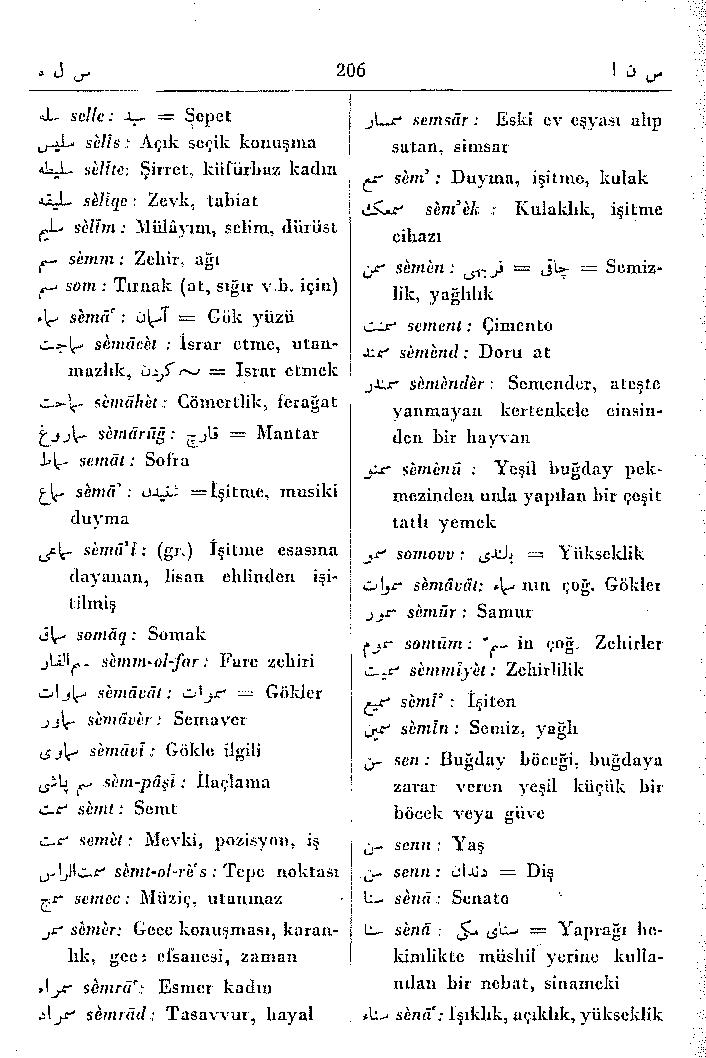 س ل ه 206 س ن ا
سله selle : سبد = Sepet
سلیس sèlîs : Açık seçik konuşma
سلیطه sèlîte: Şirret, küfürbaz kadın
سلیقه sèlîqe : Zevk, tabiat
سلیم sèlîm : Mülâyım, selim, dürüst
سم sèmm : Zehir, ağı
سم som : Tırnak (at, sığır v.b. için)
سماء sèmâ' : آسمان = Gök yüzü
سماجت sèmâcèt : İsrar etme, utan-
mazlık, ~ کردن = İsrar etmek
سماحت sèmâhèt : Cömertlik, ferağat
سماروغ sèmârûğ : قارچ = Mantar
سماط semât : Sofra
سماع sèmâ' : شنیدن = İşitme, musiki
duyma
سماعی sèmâ'î : (gr.) İşitme esasına
dayanan, lisan ehlinden işi-
tilmiş
سماق somâq : Somak
سم‌الفار sèmm-ol-far : Fare zehiri
سماوات sèmâvât : سموات = Gökler
سماور sèmâvèr : Semaver
سماوی sèmâvî : Gökle ilgili
سم پاشی sèm-pâşî : İlaçlama
سمت sèmt : Semt
سمت semèt : Mevki, pozisyon, iş
سمت‌الراس sèmt-ol-rè's : Tepe noktası
سمج semec : Müziç, utanmaz
سمر sèmèr : Gece konuşması, karan-
lık, gece efsanesi, zaman
سمراء sèmrâ' : Esmer kadın
سمراد sèmrâd : Tasavvur, hayal
سمسار semsâr : Eski ev eşyası alıp
satan, simsar
سمع sèm' : Duyma, işitme, kulak
سمعک sèm'èk : Kulaklık, işitme
cihazı
سمن sèmèn : فربهی = چاقی = Semiz-
lik, yağlılık
سمنت sement : Çimento
سمند sèmènd : Doru at
سمندر sèmèndèr : Semender, ateşte
yanmayan kertenkele cinsin-
den bir hayvan
سمنو sèmènû : Yeşil buğday pek-
mezinden unla yapılan bir çeşit
tatlı yemek
سمو somovv : بلندی = Yükseklik
سموات sèmâvât : سماء nın çoğ. Gökler
سمور sèmûr : Samur
سموم somûm : سم in çoğ. Zehirler
سمیت sèmmîyèt : Zehirlilik
سمیع sèmî' : İşiten
سمین sèmîn : Semiz, yağlı
سن sen : Buğday böceği, buğdaya
zarar veren yeşil küçük bir
böcek veya güve
سن senn : Yaş
سن senn : دندان = Diş
سنا sènâ : Senato
سنا sènâ : سنای مکی = Yaprağı he-
kimlikte müshil yerine kulla-
nılan bir nebat, sinameki
سناء sènâ' : Işıklık, açıklık, yükseklik